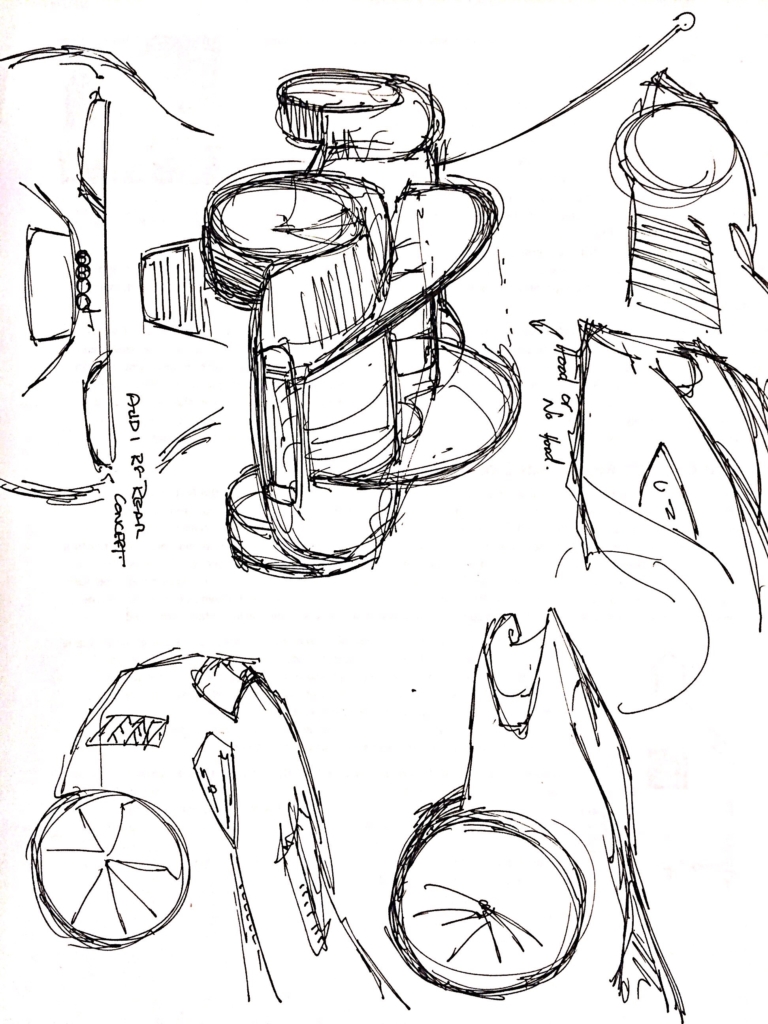 AUDI R8 REAR
CONCEPT
Hood or
No Hood.